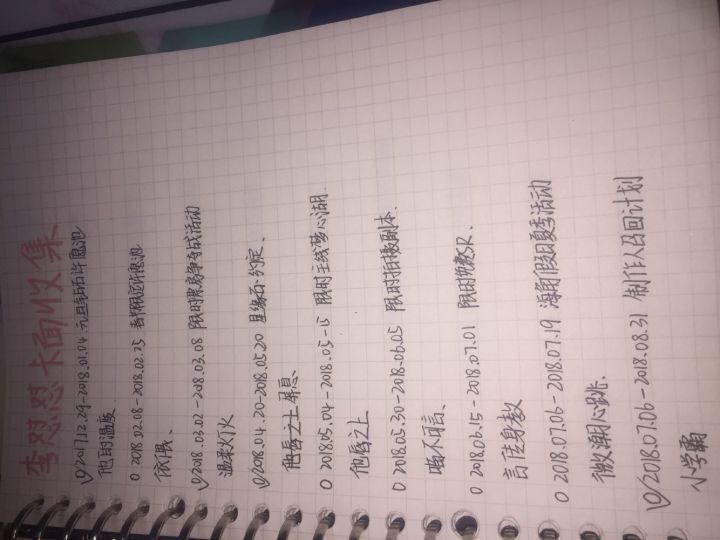 李怼怼卡面收集
2017.12.29-2018.01.04 元旦钻石许愿池
他的温度
O 2018.02.08-2018.02.25 春节限定许愿池
依偎、
2018.03.02-2018.03.08 限时票房争夺战活动
温柔灯火
2018.04.20-2018.05.20 星缘石约定、
他唇之上屏息、
O 2018.05.04-2018.05-15 限时主线梦心湖
他唇之上
O 2018.05.30-2018.06.05 限时拍摄副本
喻不可言、
O 2018.06.15-2018.07.01 限时免费SR、
言传身教
O 2018.07.06-2018.07.19 海角假日夏季活动
微潮心跳.
2018.07.06-2018.08.31 制作人召回计划
小学霸